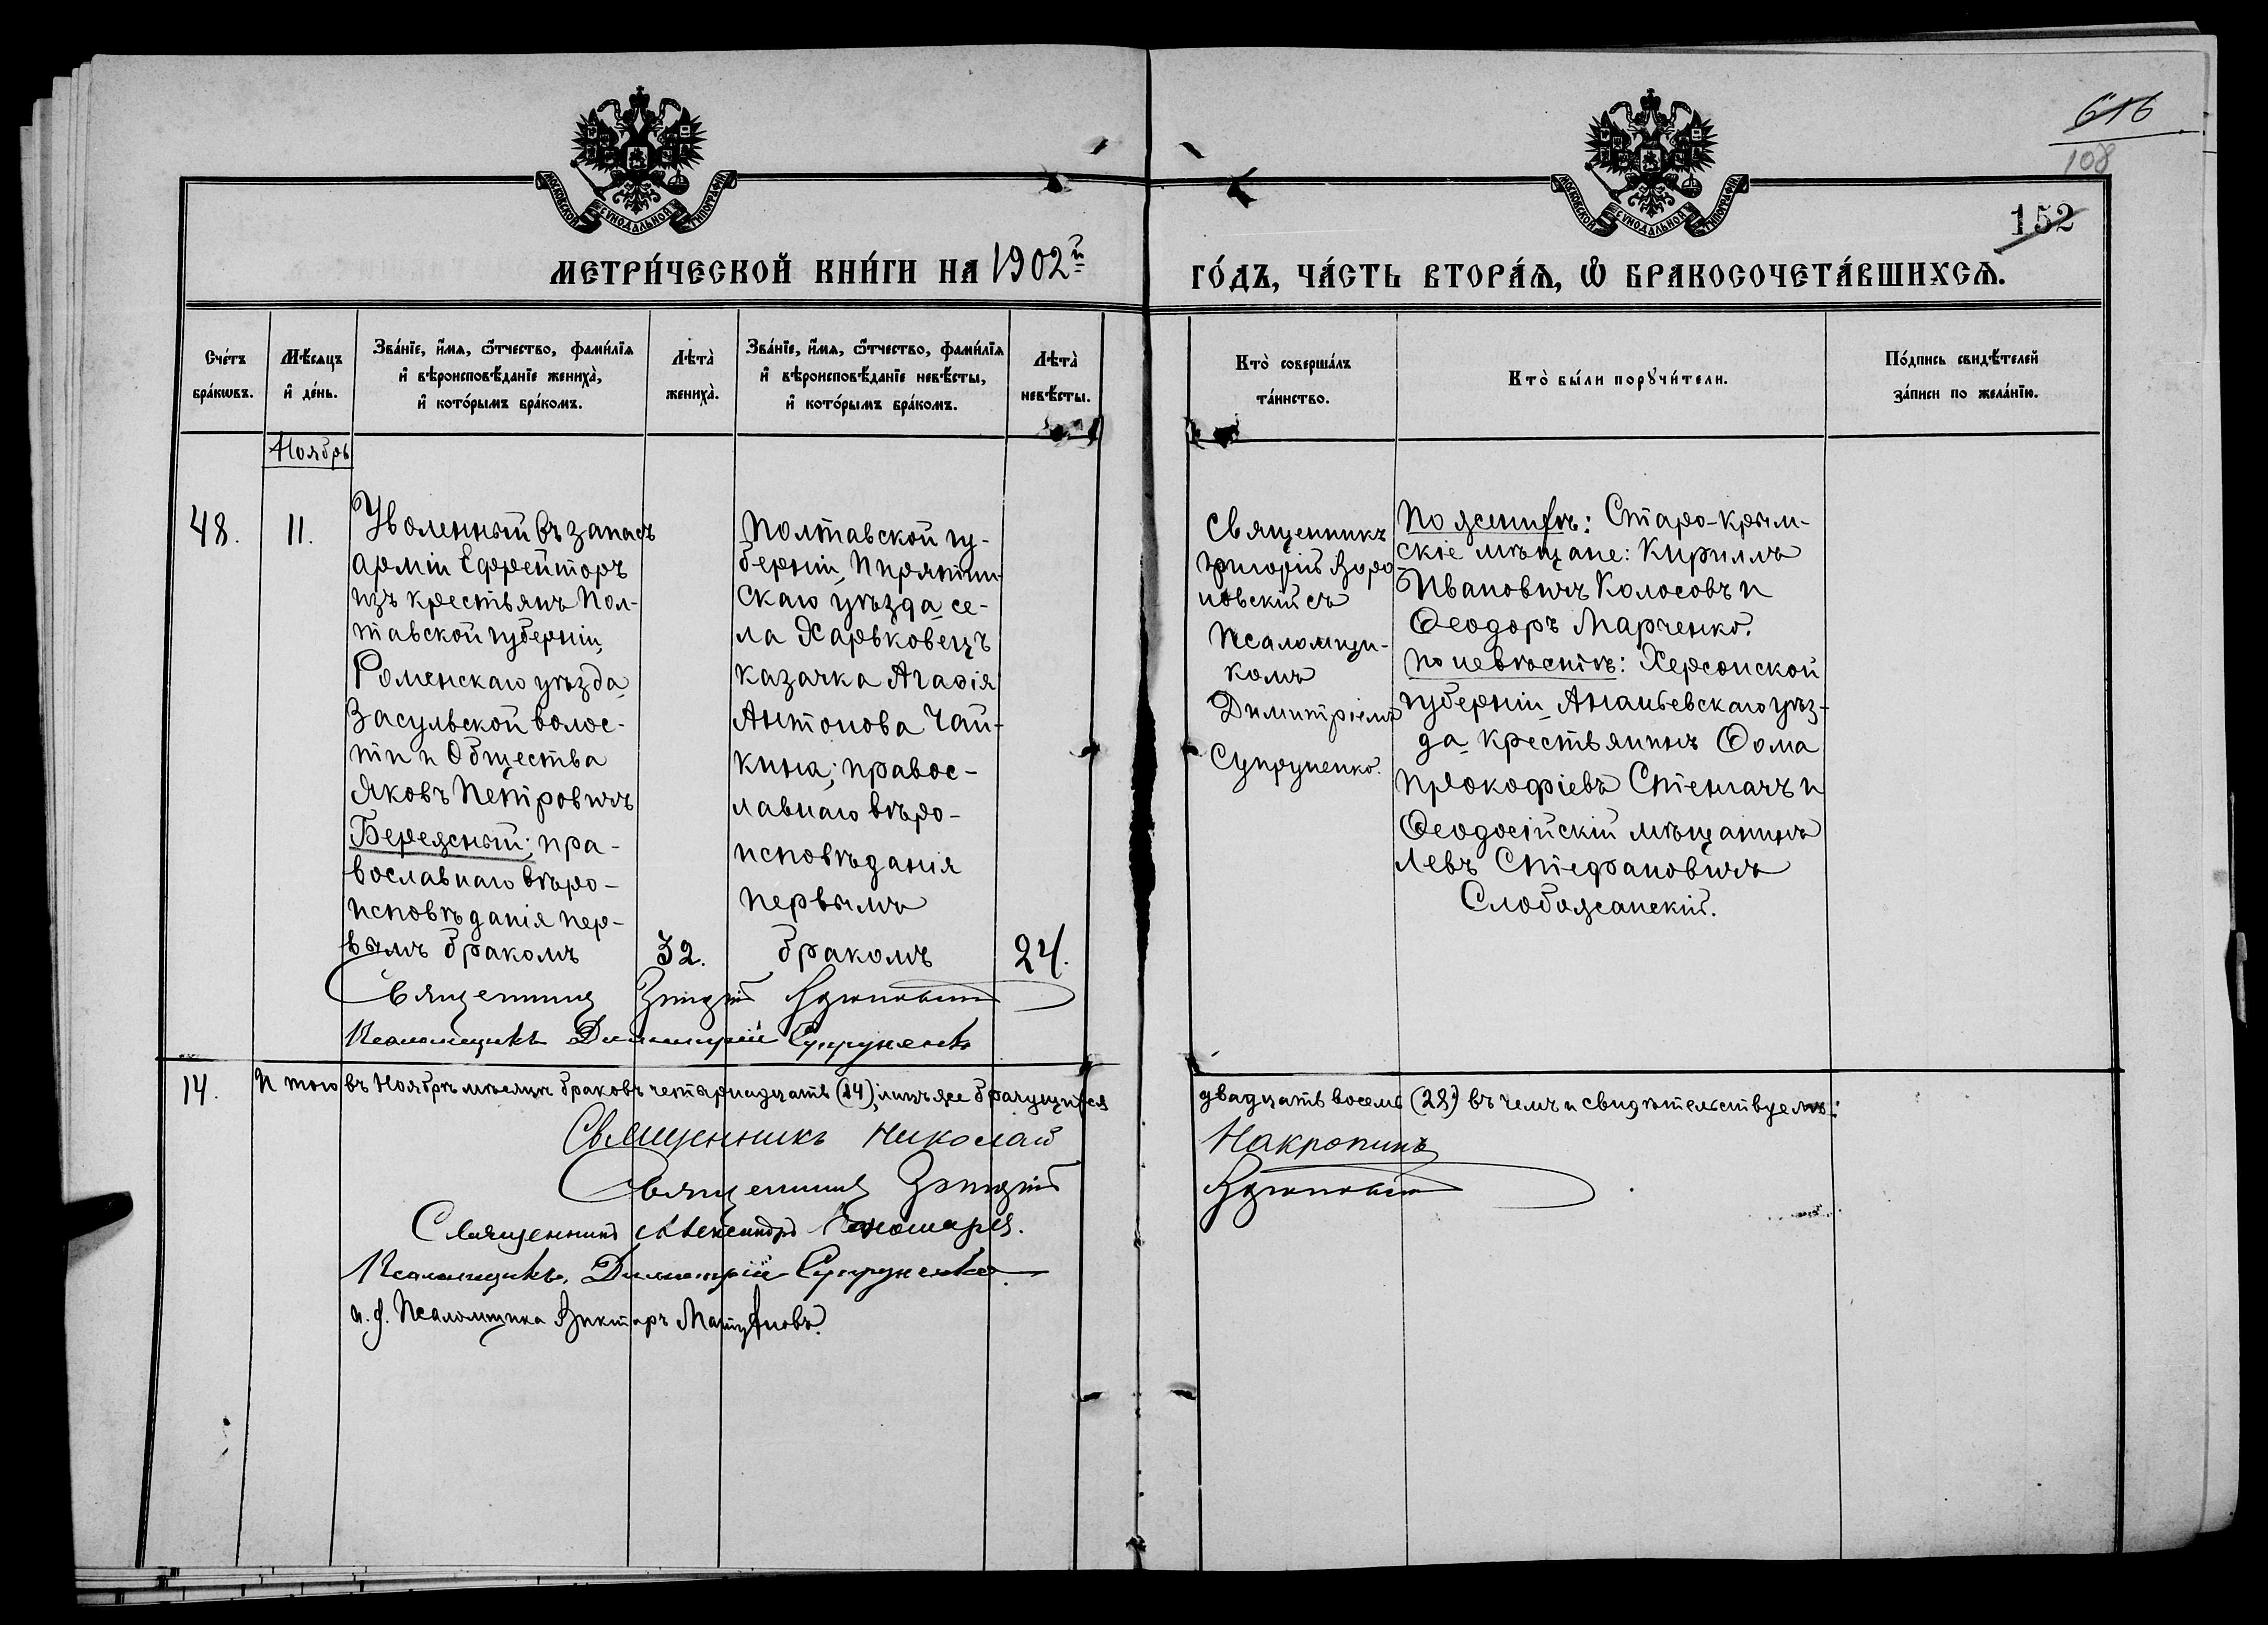 616
108
152
МОСКОВСКОЙ СѴНОДАЛЬНОЙ ТИПОГРАФІИ
МОСКОВСКОЙ СѴНОДАЛЬНОЙ ТИПОГРАФІИ
МЕТРИ́ЧЕСКОЙ КНИ́ГИ НА 1902й
ГО́ДЪ, ЧА́СТЬ ВТОРА́Ѧ, Ѽ БРАКОСОЧЕТА́ВШИХСѦ.
Сче́тъ
бра́кѡвъ.
Мѣ́сѧцъ
и҆ де́нь.
Зва́нїе, и҆́мѧ, ѻ҆́тчество, фами́лїѧ
и҆ вѣроисповѣ́данїе жениха̀,
и҆ кото́рымъ бра́комъ.
Лѣта̀
жениха̀.
Зва́нїе, и҆́мѧ, ѻ҆́тчество, фами́лїѧ
и҆ вѣроисповѣ́данїе невѣ́сты,
и҆ кото́рымъ бра́комъ.
Лѣта̀
невѣ́сты.
Кто̀ соверша́лъ
та́инство.
Кто̀ бы́ли порꙋчи́тели.
По́дпись свидѣ́телей
за́писи по жела́нїю.
Ноябрь
48.
11.
Уволенный въ запасъ
арміи Ефрейторъ
изъ крестьянъ Пол-
тавской губерніи,
Роменскаго уѣзда
Засульской волос-
ти и Общества
Яковъ Петровичъ
Бережный; пра-
вославнаго вѣро-
исповѣданія пер-
вымъ бракомъ
32.
Полтавской гу-
берніи, Пирятин-
скаго уѣзда се-
ла Харьковецъ
казачка Агафія
Антонова Чай-
кина; правос-
лавнаго вѣро-
исповѣданія
первымъ
бракомъ
24.
Священникъ
Григорій Воро
новскій съ
Псаломщи-
комъ
Димитріемъ
Супруненко.
По женихѣ: Старо-крым-
скіе мѣщане: Кириллъ
Ивановичъ Колосовъ и
Ѳеодоръ Марченко.
по невѣстѣ: Херсонской
губерніи Ананьевскаго уѣз-
да крестьянинъ Ѳома
Прокофіевъ Стенгачъ и
Ѳеодосійскій мѣщанинъ
Левъ Стефановичъ
Слобожанскій.
Священникъ Григорій Вороновскій
Псаломщикъ Димитрій Супруненко
14.
И того въ Ноябрѣ мѣсяцѣ браковъ четырнадцать (14), лицъ же брачущихся
двадцать восемь (28) въ чемъ и свидѣтельствуемъ:
Священникъ Николай
Накропинъ
Священникъ Григорій
Вороновскій
Священникъ Александръ
Псаломщикъ Димитрій Супруненко
и. д. Псаломщика Викторъ